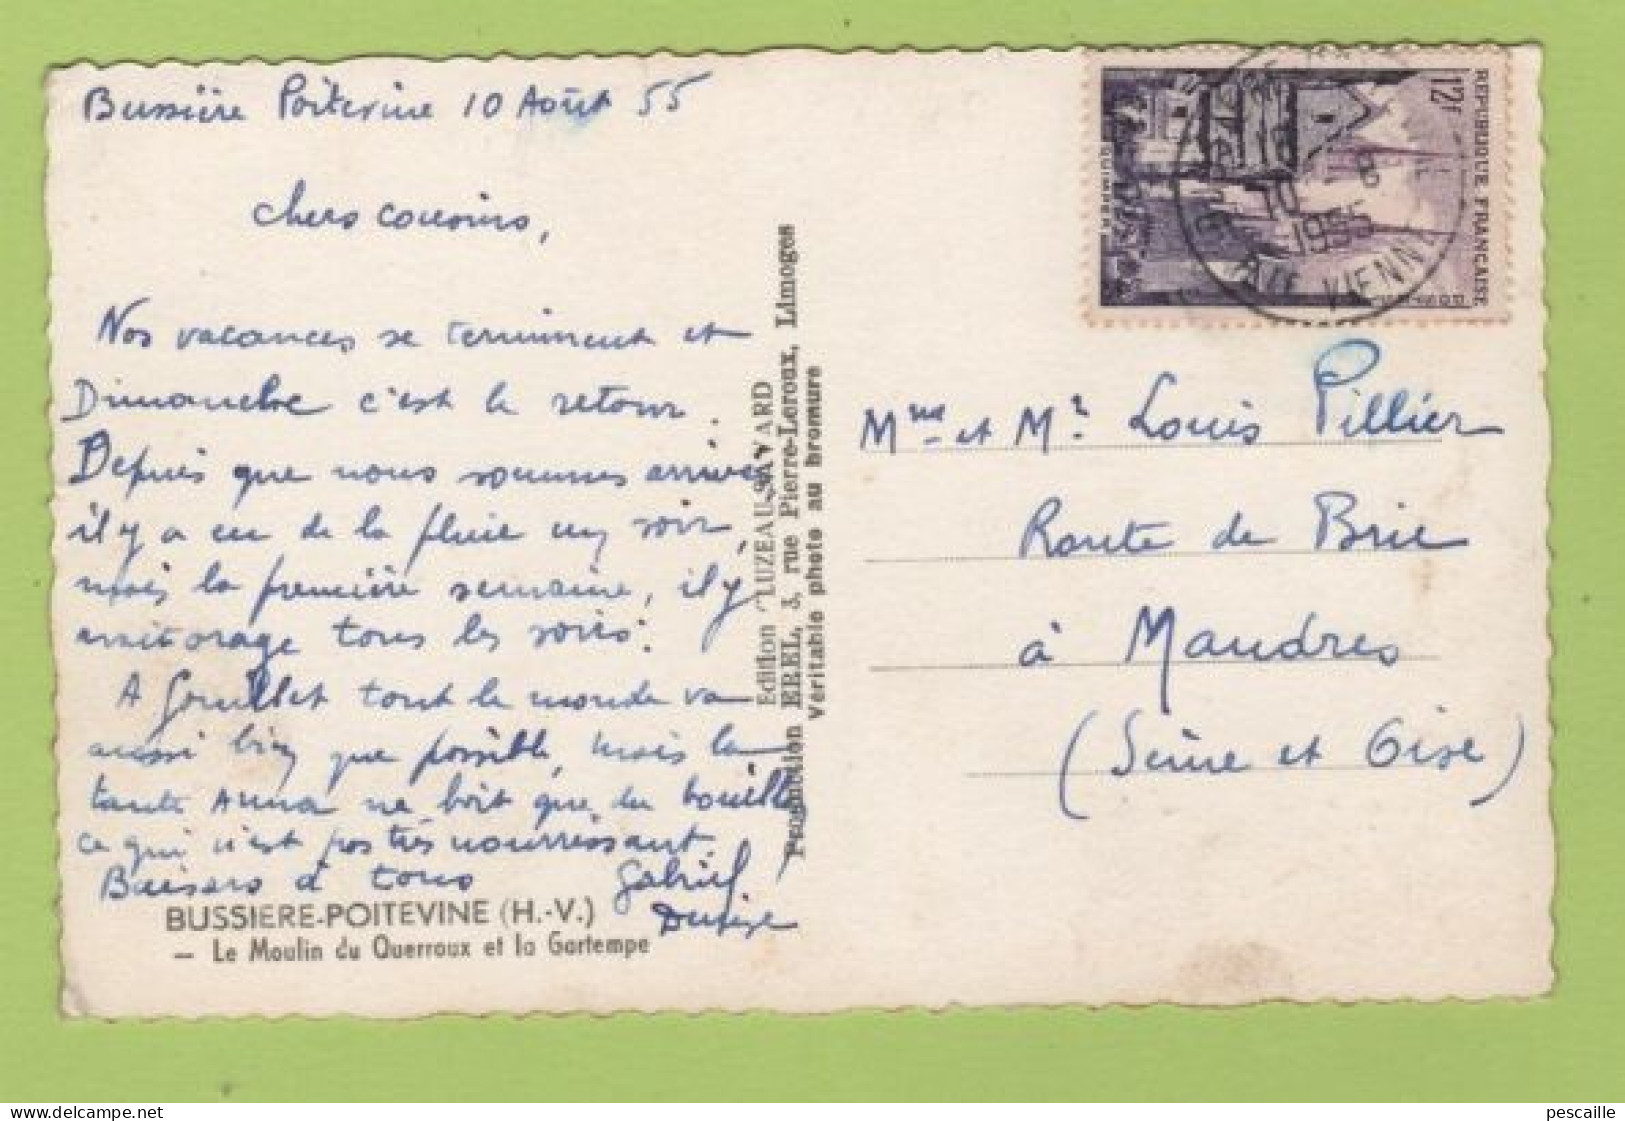 Bussière Poitevine 10 Août 55
Chers cousins,
Nos vacances se terminent et
Dimanche c'est le retour.
Depuis que nous sommes arrivés
il y a eu de la pluie un soir,
mais la première semaine, il y
avait orage tous les soirs.
A Gouillet tout le monde va
aussi bien que possible, mais la
tante Anna ne boit que du bouillon
ce qui n'est pas très nourrissant.
Baisers à tous Gabriel
Denise
BUSSIERE-POITEVINE (H.-V.)
— Le Moulin du Querroux et la Gartempe
Edition LUZEAU-SAVARD
Production EREL, 3, rue Pierre-Leroux, Limoges
Véritable photo au bromure
REPUBLIQUE FRANÇAISE
12F
QUIMPER
10 - 8
1955
HTE VIENNE
Mme et Mr Louis Pillier
Route de Brie
à Mandres
(Seine et Oise)
pescaille